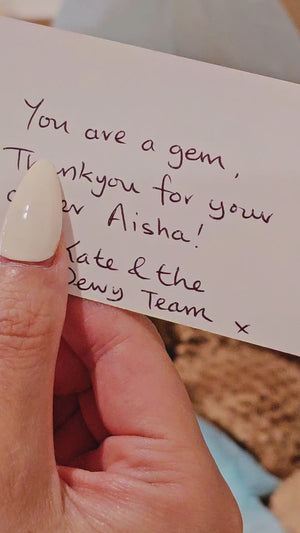 You are a gem,
Thankyou for your
order Aisha!
Kate & the
Dewy Team x